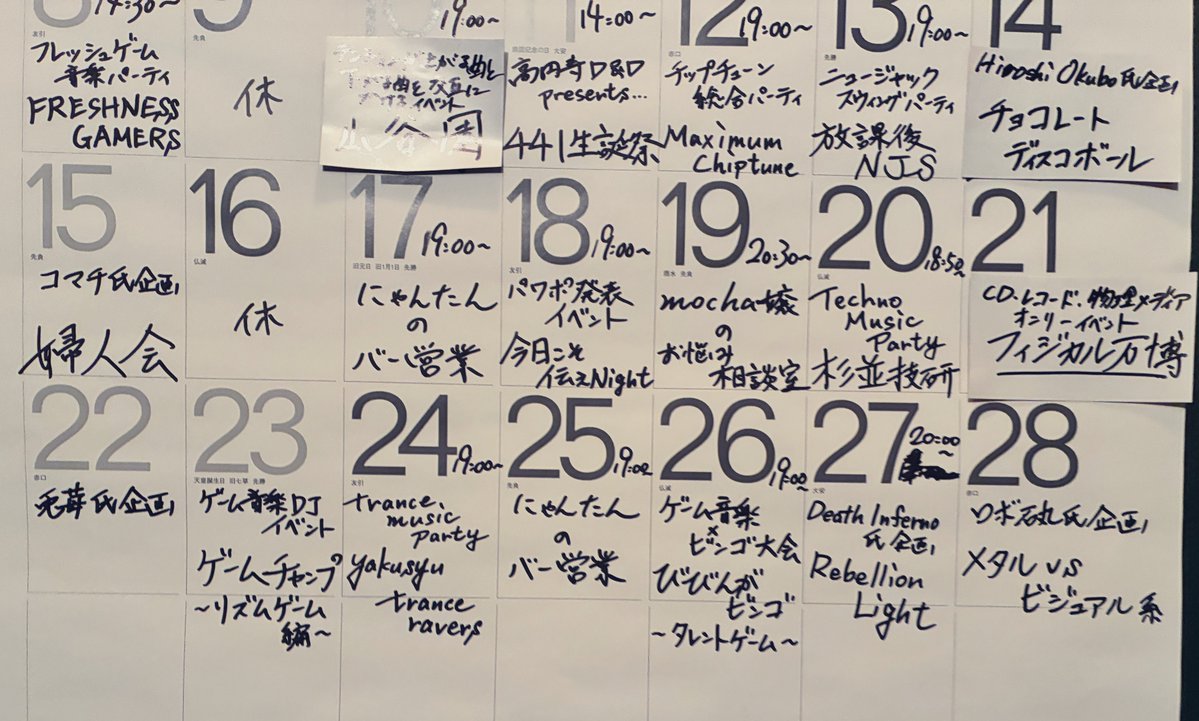 8 14:30~
友引
フレッシュゲーム
音楽パーティ
FRESHNESS
GAMERS
9
先負
休
19:00~
イベント
11 14:00~
建国記念の日 大安
高円寺D&D
presents...
441生誕祭
12 19:00~
赤口
チップチューン
総合パーティ
Maximum
Chiptune
13 19:00~
先勝
ニュージャック
スウィングパーティ
放課後
NJS
14
Hiroshi Okubo氏企画
チョコレート
ディスコボール
15
先負
コマチ氏企画
婦人会
16
仏滅
休
17 19:00~
旧元日 旧1月1日 先勝
にゃんたん
の
バー営業
18 19:00~
友引
パワポ発表
イベント
今日こそ
伝えNight
19 20:30~
雨水 先負
mocha嬢
の
お悩み
相談室
20 18:50~
仏滅
Techno
Music
Party
杉並技研
21
CD・レコード・物理メディア
オンリーイベント
フィジカル万博
22
赤口
氏企画
23
天皇誕生日 旧七草 先勝
ゲーム音楽DJ
イベント
ゲームチャンプ
~リズムゲーム
編~
24 19:00~
友引
trance.
music
party
yakusyu
trance
ravers
25 19:00
先負
にゃんたん
の
バー営業
26 19:00~
仏滅
ゲーム音楽
×
ビンゴ大会
びびんが
ビンゴ
~タレントゲーム~
27 20:00
~
大安
Death Inferno
氏企画
Rebellion
Light
28
赤口
ロボ石丸氏企画
メタル vs
ビジュアル系